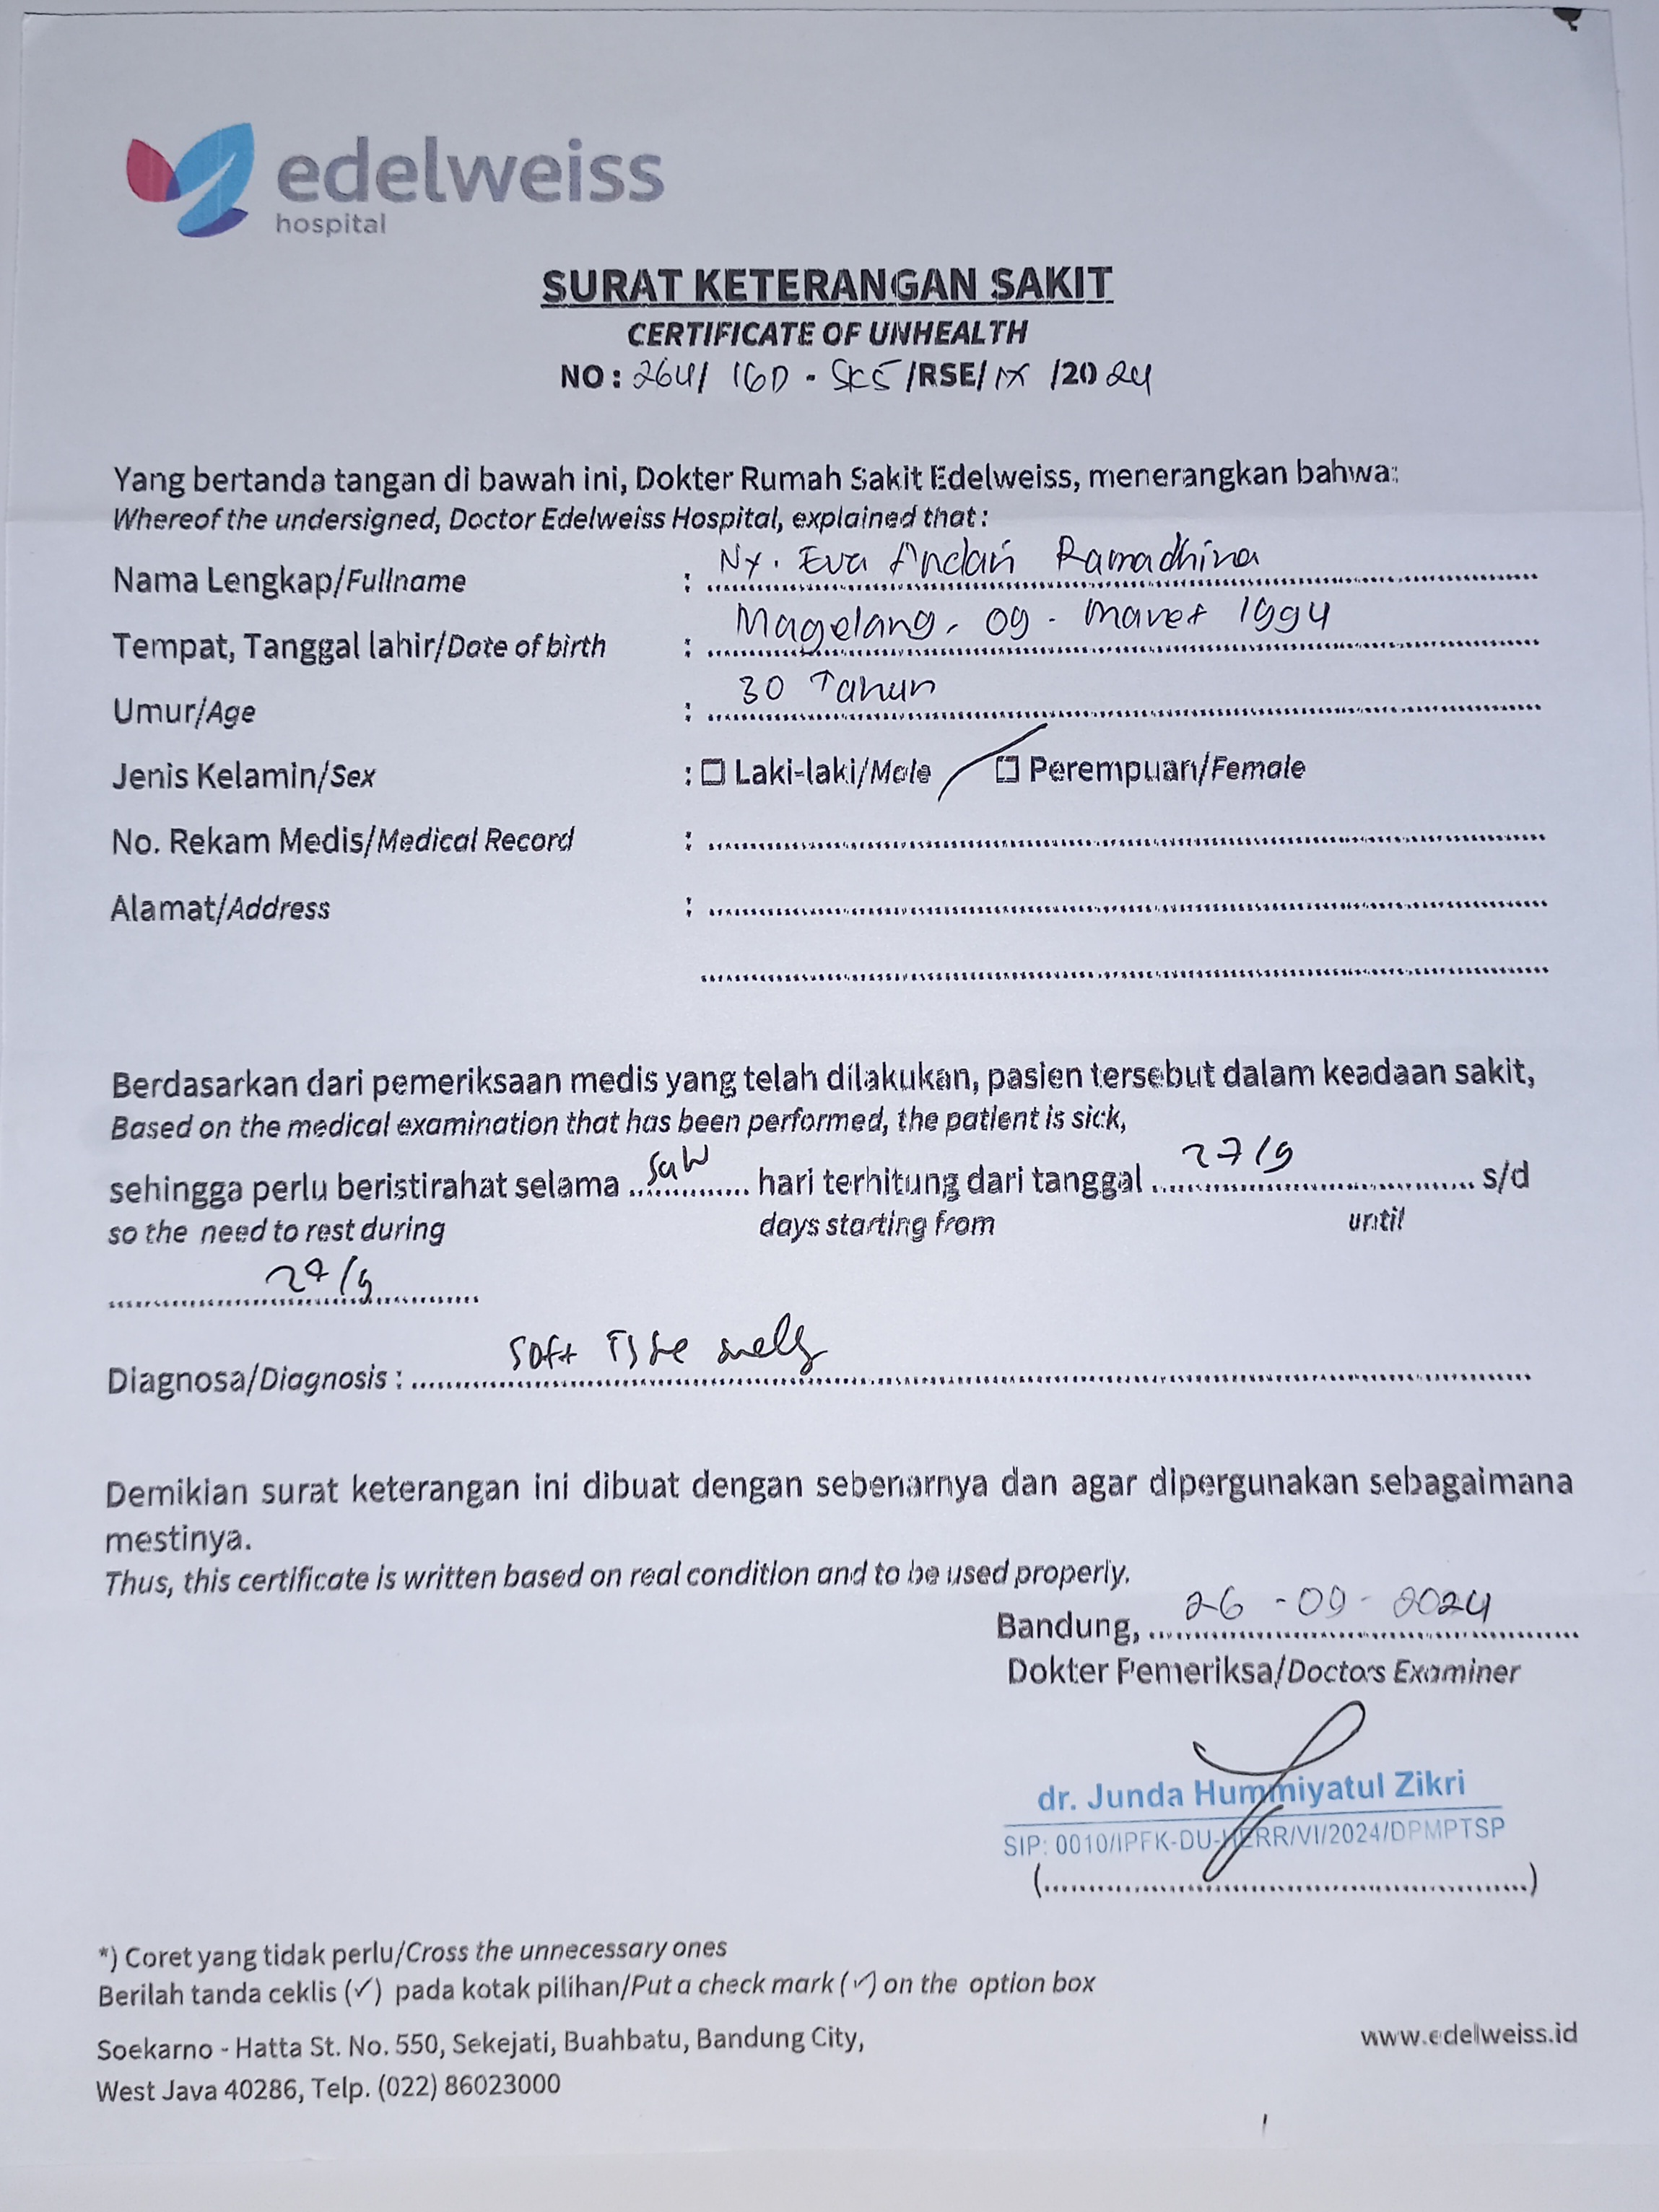 edelweiss
hospital
SURAT KETERANGAN SAKIT
CERTIFICATE OF UNHEALTH
NO : 264/ IGD - SKS /RSE/ IX /20 24
Yang bertanda tangan di bawah ini, Dokter Rumah Sakit Edelweiss, menerangkan bahwa:
Whereof the undersigned, Doctor Edelweiss Hospital, explained that :
Nama Lengkap/Fullname : Ny. Eva Andari Ramadhina
Tempat, Tanggal lahir/Date of birth : Magelang, 09 - Maret 1994
Umur/Age : 30 Tahun
Jenis Kelamin/Sex : ☐ Laki-laki/Male ☐ Perempuan/Female
No. Rekam Medis/Medical Record :
Alamat/Address :
Berdasarkan dari pemeriksaan medis yang telah dilakukan, pasien tersebut dalam keadaan sakit,
Based on the medical examination that has been performed, the patient is sick,
sehingga perlu beristirahat selama hari terhitung dari tanggal 27/9 s/d
so the need to rest during days starting from until
27/9
Diagnosa/Diagnosis : Soft
Demikian surat keterangan ini dibuat dengan sebenarnya dan agar dipergunakan sebagaimana
mestinya.
Thus, this certificate is written based on real condition and to be used properly.
Bandung, 26 - 09 - 2024
Dokter Pemeriksa/Doctors Examiner
dr. Junda Hummiyatul Zikri
SIP: 0010/IPFK-DU-HERR/VI/2024/DPMPTSP
*) Coret yang tidak perlu/Cross the unnecessary ones
Berilah tanda ceklis (✓) pada kotak pilihan/Put a check mark (✓) on the option box
Soekarno - Hatta St. No. 550, Sekejati, Buahbatu, Bandung City,
West Java 40286, Telp. (022) 86023000
www.edelweiss.id